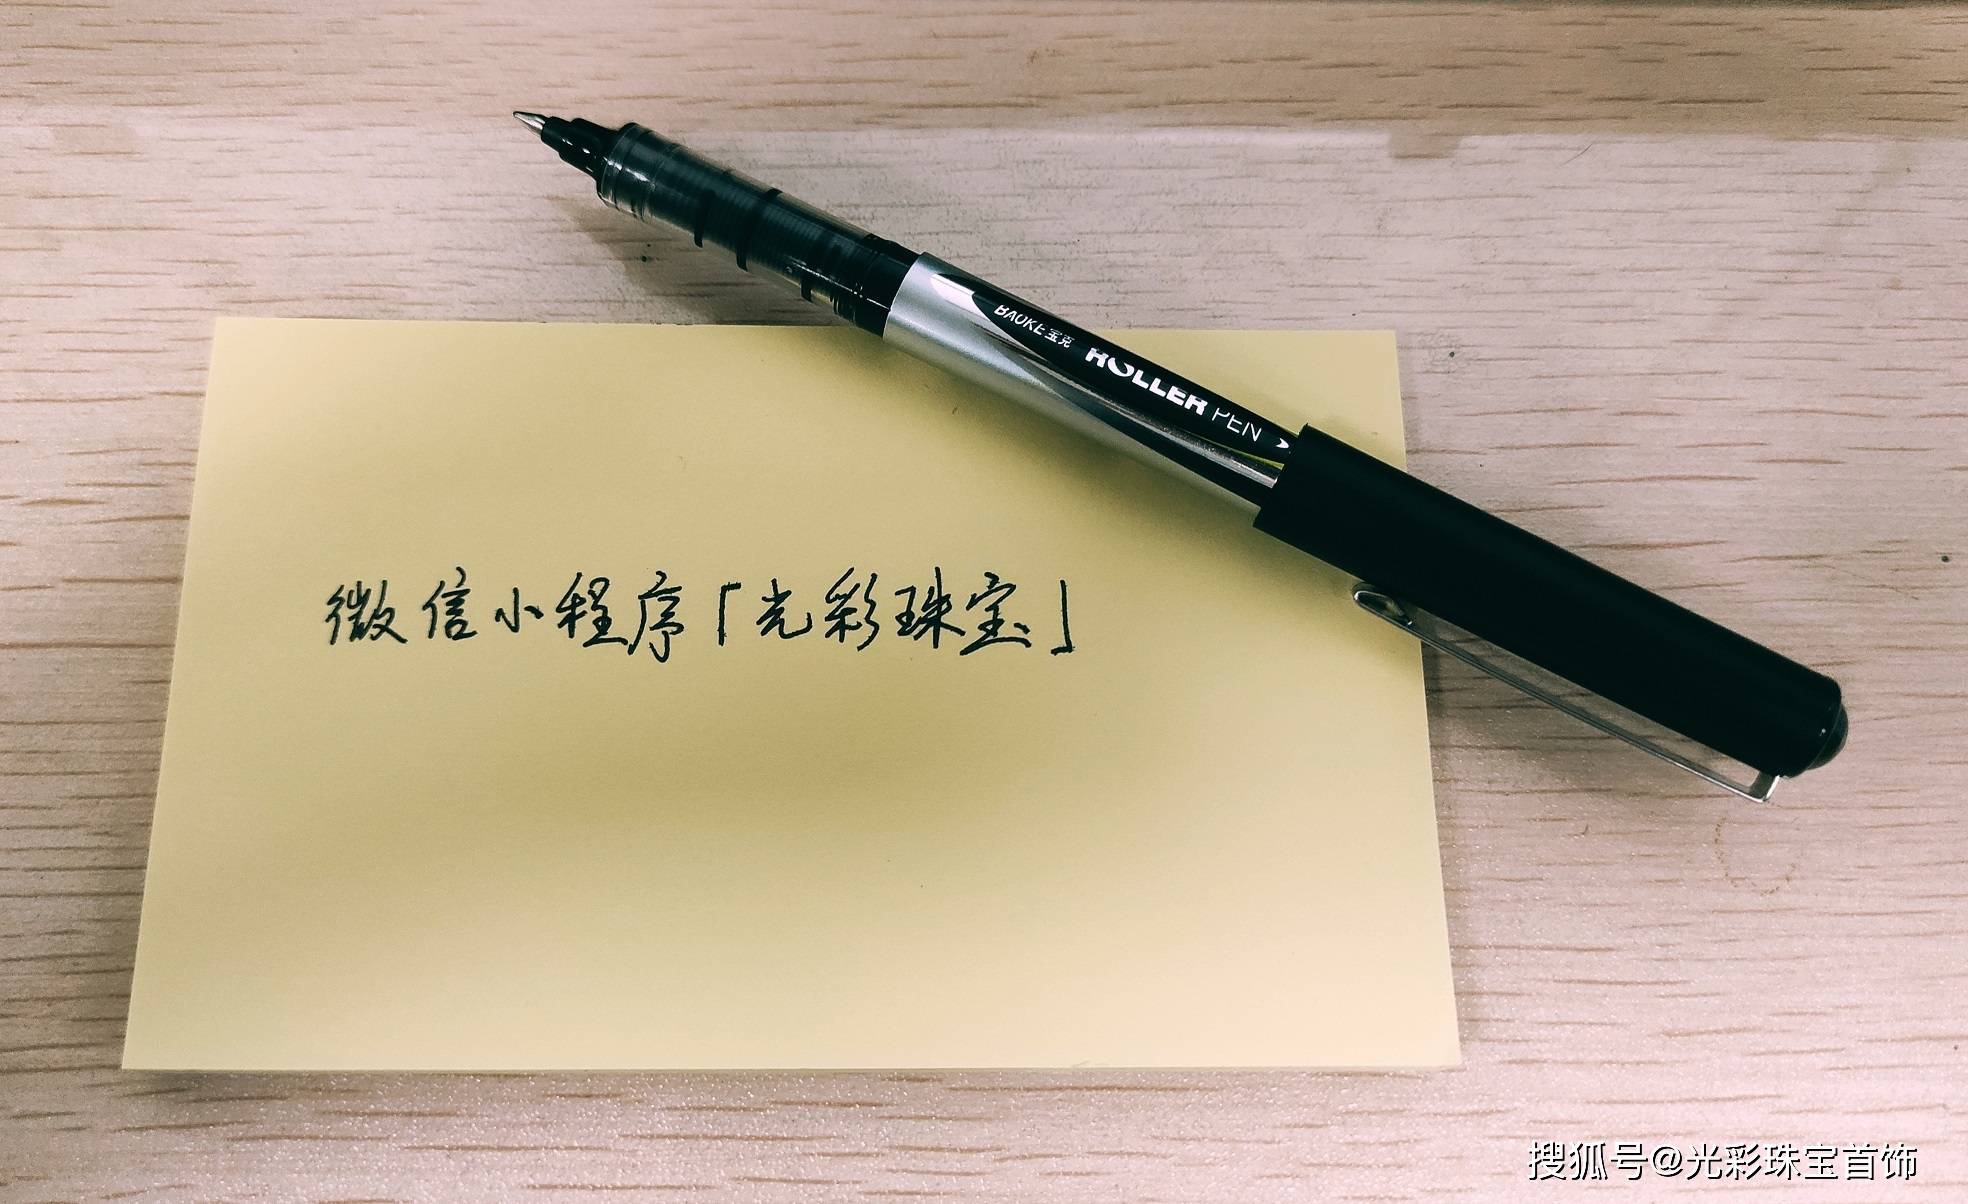 BAOKE 宝克 ROLLER PEN
微信小程序「光彩珠宝」
搜狐号@光彩珠宝首饰